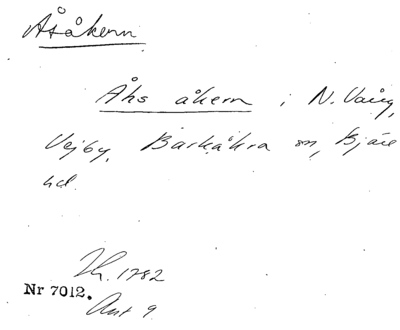 Åsåkern
Åhs åkern i N. Vång,
Vejby, Barkåkra sn, Bjäre
hd.
Lh. 1782
Nr 7012.
Akt 9